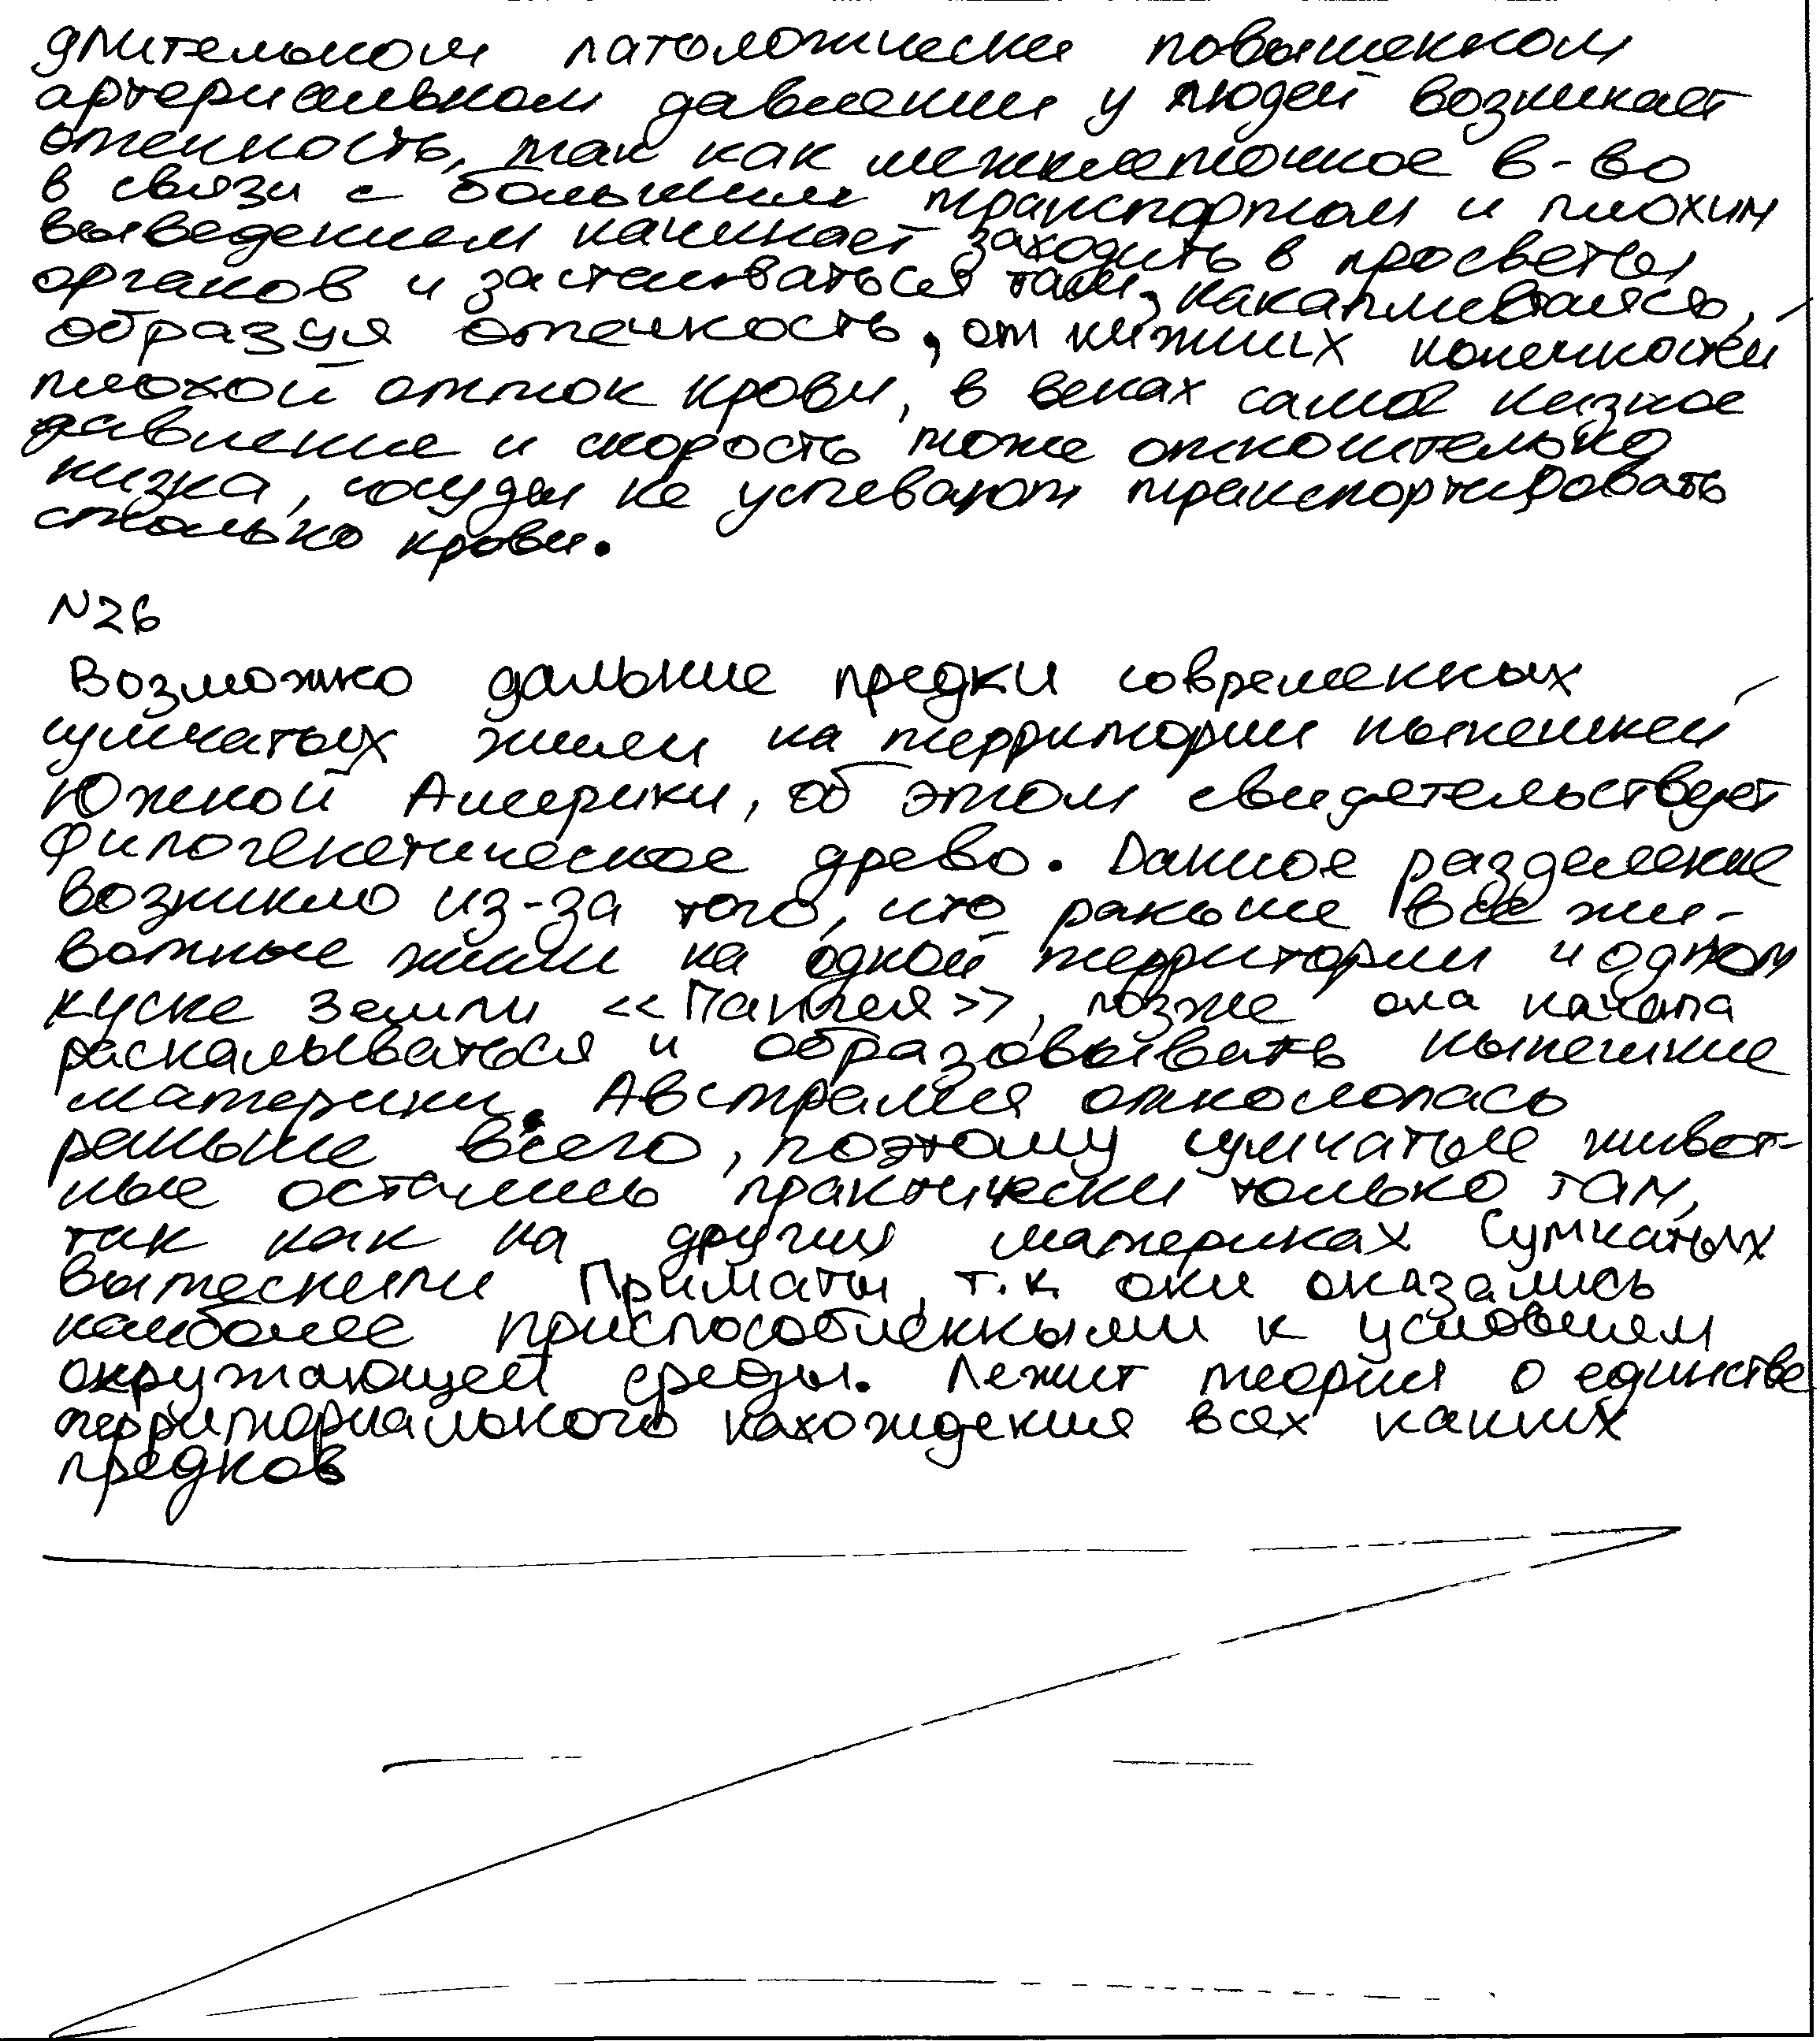 длительном патологически повышенном
артериальном давлении у людей возникает
отечность, так как межклеточное в-во
в связи с большим транспортом и плохим
выведением начинает заходить в просветы
органов и застаиваться там, накапливаясь,
образуя отечность, от нижних конечностей
плохой отток крови, в венах самое низкое
давление и скорость тоже относительно
низка, сосуды не успевают транспортировать
столько крови.
N26
Возможно дальние предки современных
сумчатых жили на территории нынешней
Южной Америки, об этом свидетельствует
филогенетическое древо. Данное разделение
возникло из-за того, что раньше все жи-
вотные жили на одной территории и одном
куске земли <<Пангея>>, позже она начала
раскалываться и образовывать нынешние
материки. Австралия откололась
раньше всего, поэтому сумчатые живот-
ные остались практически только там,
так как на других материках сумчатых
вытеснили Приматы, т.к. они оказались
наиболее приспособленными к условиям
окружающей среды. Лежит теория о единстве
территориального нахождения всех наших
предков